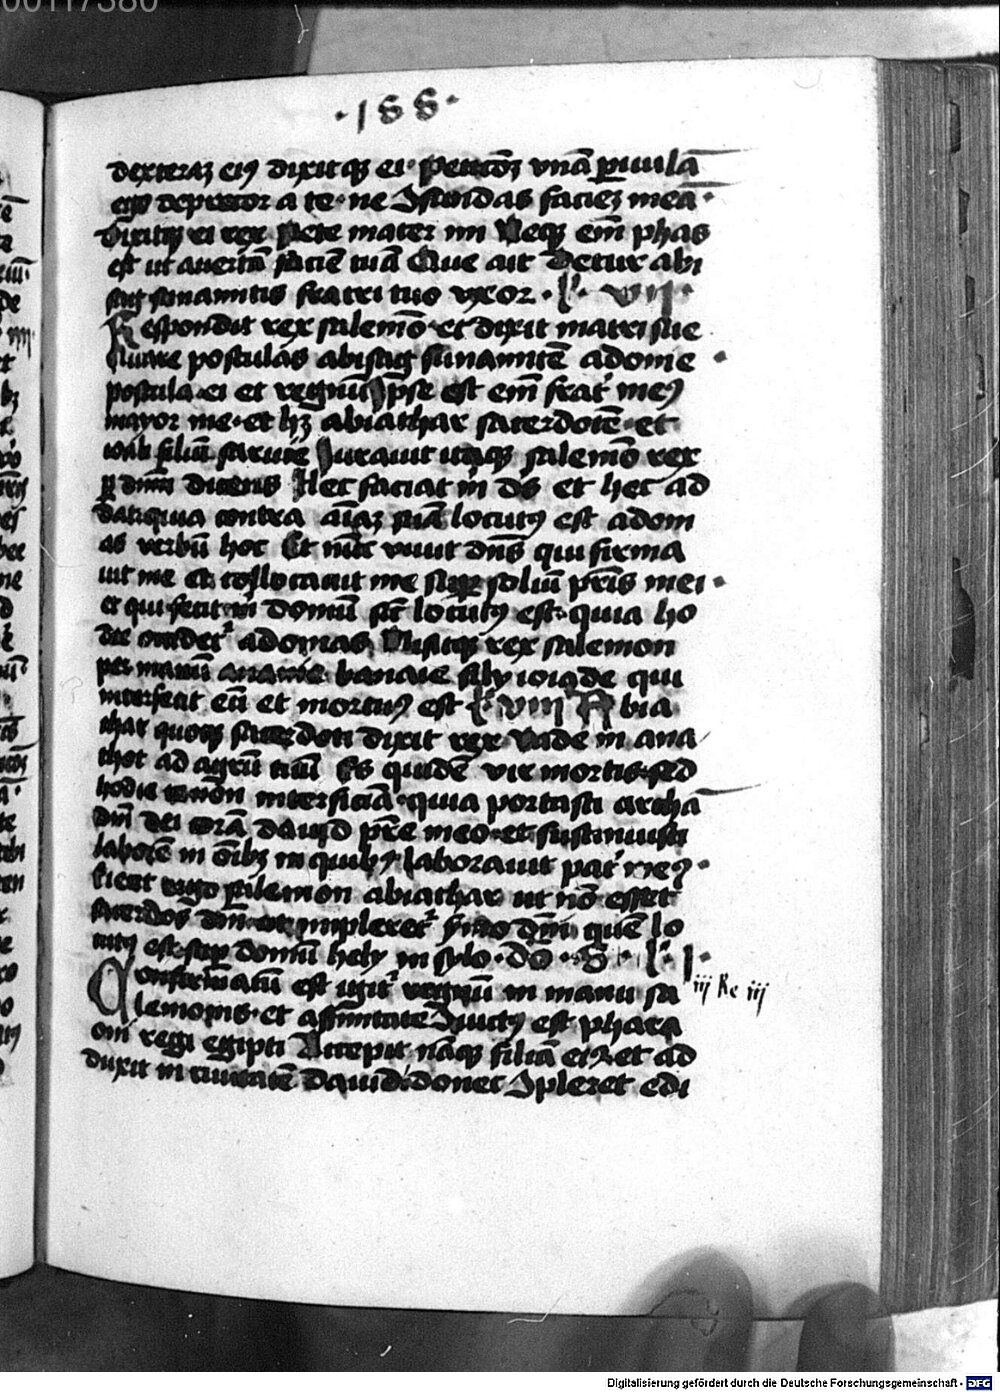 00117380
·188·
dexteraʒ eiꝯ dixitqꝫ ei· Peticōʒ vnā paruulā
ego deprecor a te· ne ɔfundas facieʒ meā·
Dixitqꝫ ei rex Pete mater mi Neqꝫ em̄ phas
est ut auertā faciē tuā Que ait Detur abi
sag sunamitis fratri tuo vxor· L· VII·
Respondit rex salemō et dixit matri sue
Quare postulas abisag sunamitē adonie·
postula ei et regnū Ipse est em̄ frat meꝯ
mayor me· et hʒ abiathar saterdotē· et
ioab filiū saruie Iurauit itaqꝫ salemō rex
ꝑ dnm̄ dicens Hec faciat m̄ ds̄ et hec ad
dat quia contra aīaʒ suā locutꝯ est adoni
as verbū hoc Et nūc viuit dn̄s qui firma
uit me et collocauit me suꝑ soliū pr̄is mei·
et qui fecit m̄ domū sic̄ locutꝯ est· quia ho
die occidet adonias Misitqꝫ rex salemon
per manū banaie filij ioiade qui
interfecit eū et mortuꝯ est L· VIII Abia
thar quoqꝫ sacerdoti dixit rex Vade in ana
thot ad agrū tuū Es quidē vir mortis· sed
hodie te non interficiā· quia portasti archā
dn̄i dei corā dauid pr̄e meo· et sustinuisti
laborē in ōibꝫ in quibꝯ laborauit pat meꝯ·
Eiecit ergo salemon abiathar ut nō esset
sacerdos dn̄i· ut impleret ̄mo dn̄i quē lo
cutꝯ est suꝑ domū hely in sylo· L· I·
Confirmatū est igit regnū in manu sa
iii Re iii
lemonis· et affinitate ɔiuctꝯ est phara
oni regi egipti Accepit nāqꝫ filiā eiꝯ et ad
duxit in ciuitatē Dauid· donec ɔpleret edi
Digitalisierung gefördert durch die Deutsche Forschungsgemeinschaft - DFG